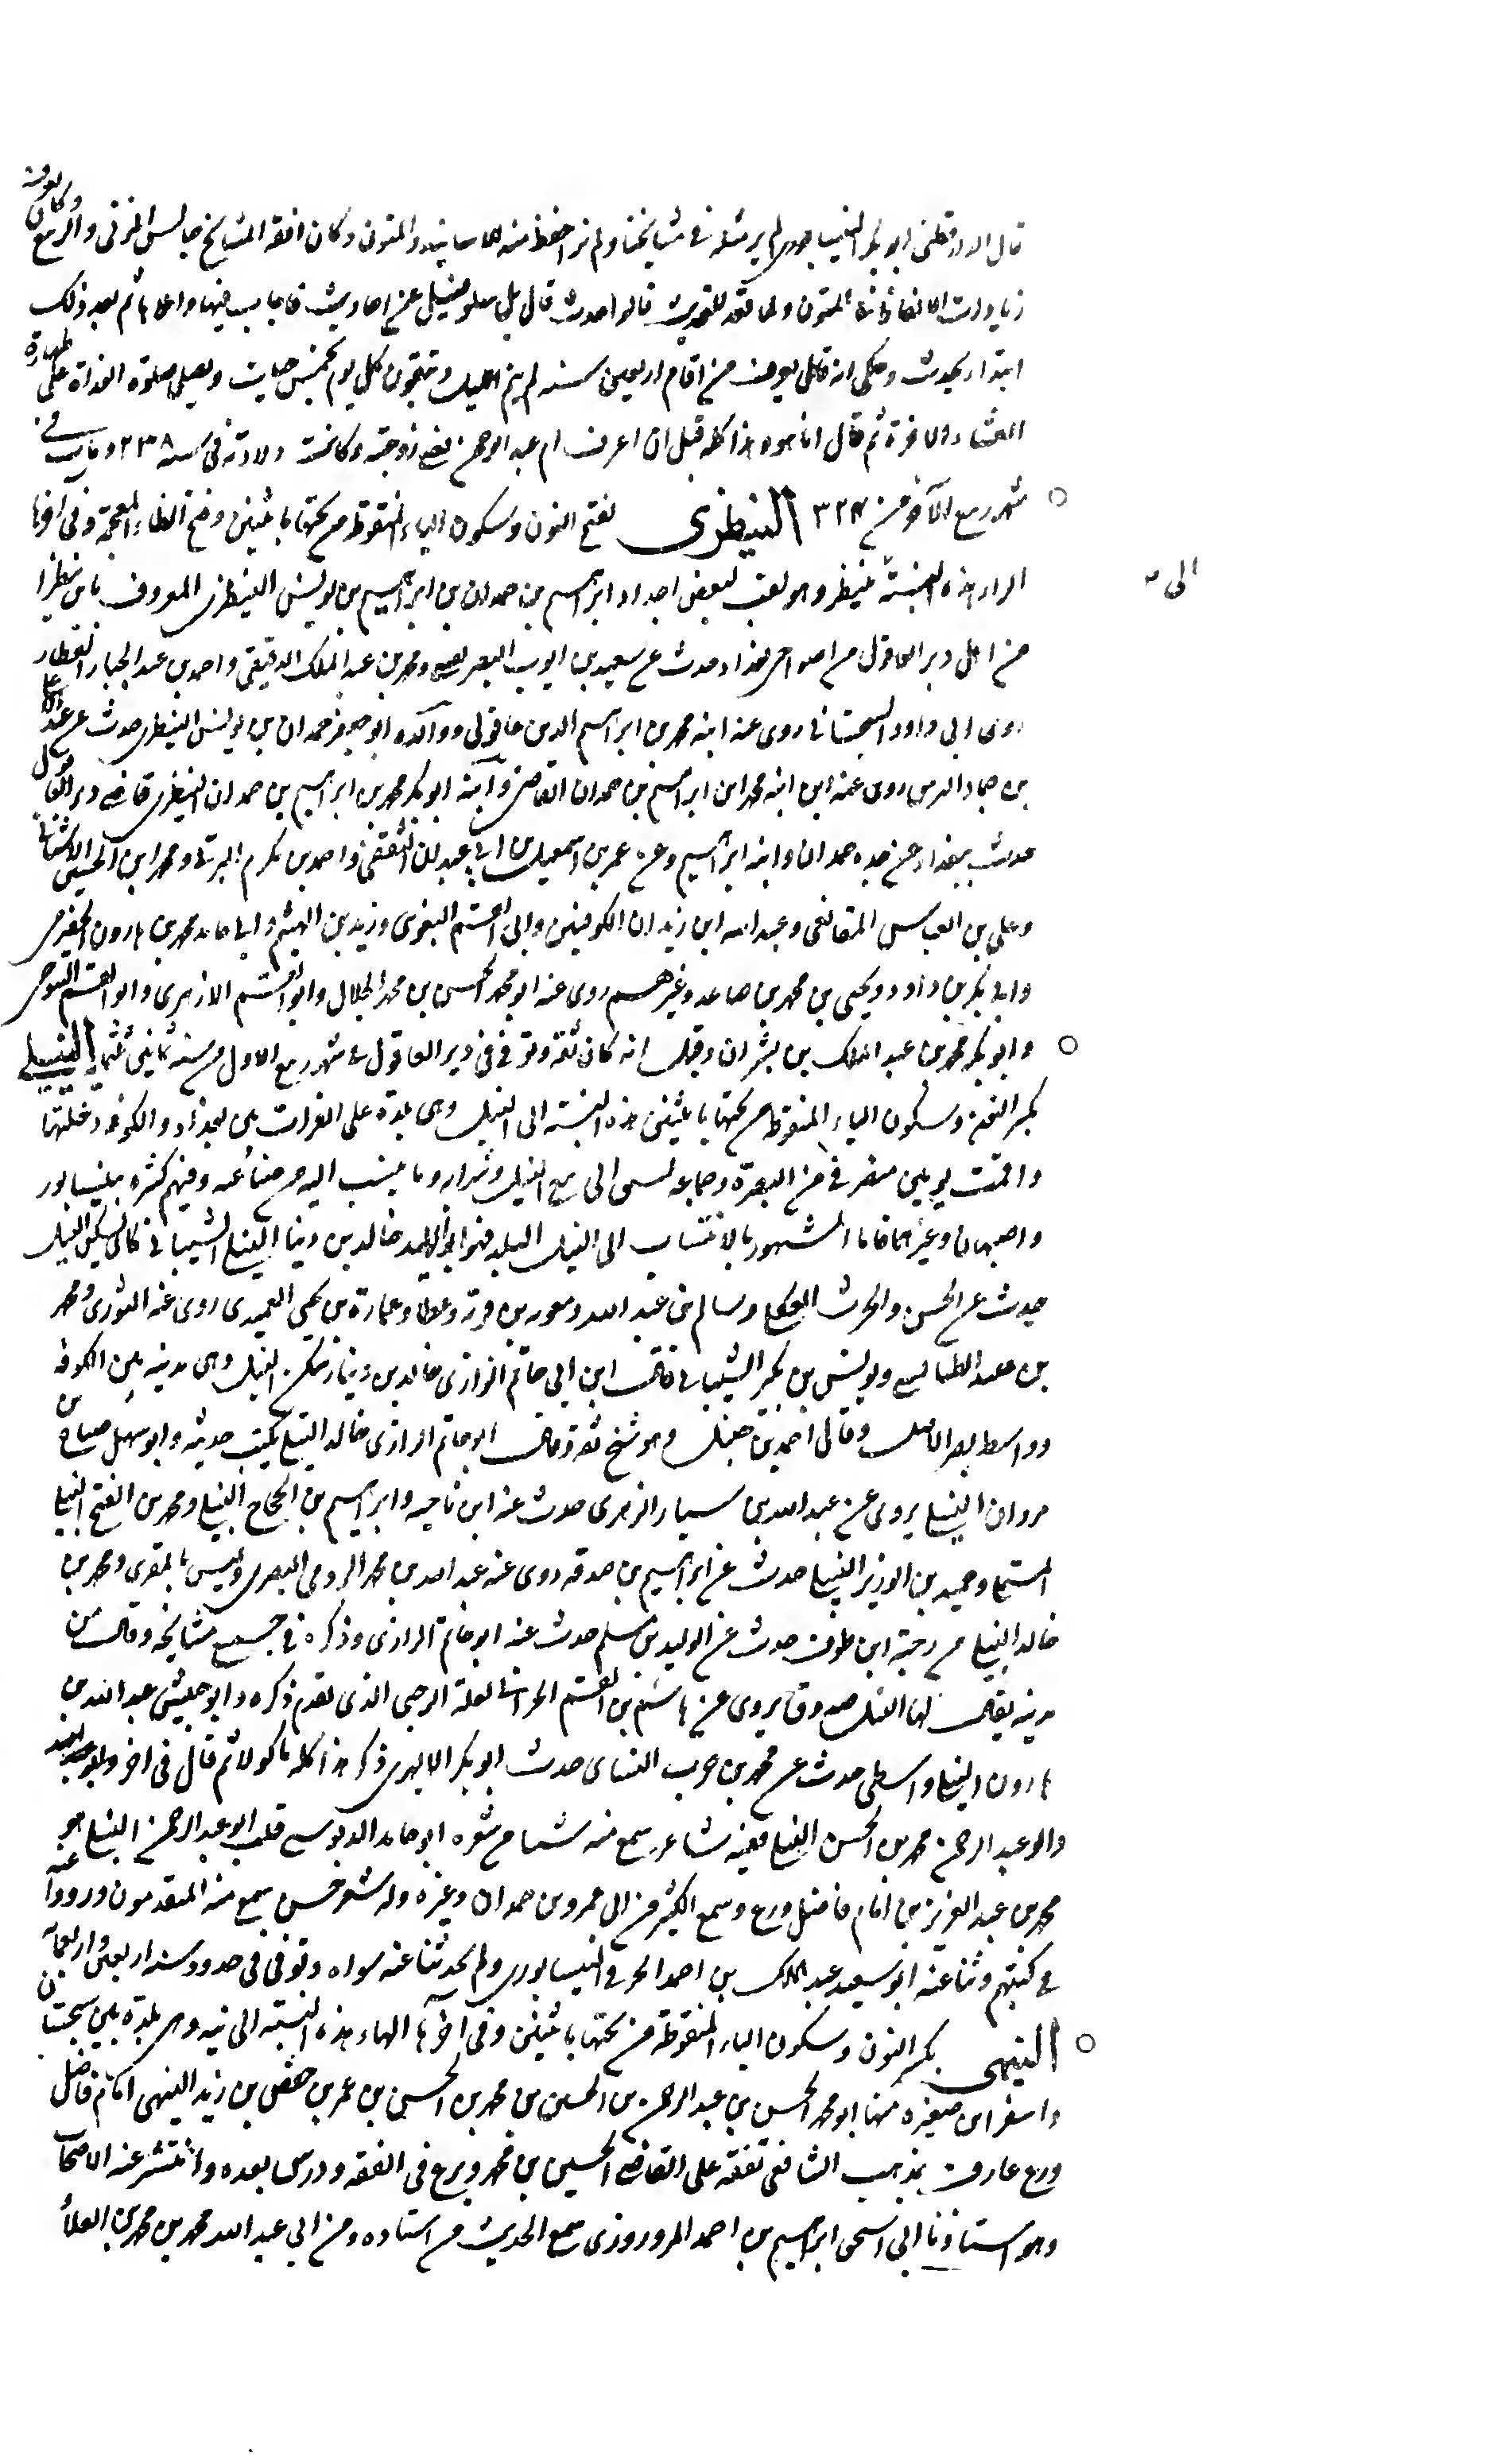 قال الدارقطني ابو بكر النيسابوري لم ير مثله في مشايخنا ولم نر احفظ منه للاسانيد والمتون وكان افقه المشايخ جالس المزني والربيع وكان يعرف
زيادات الالفاظ في المتون ولما قعد للتحديث قالوا حدث قال بل سلوا فسئل عن احاديث فاجاب فيها واملاها ثم بعد ذلك
ابتداء يحدث وحكى انه قال يعرف من اقام اربعين سنه لم ينم الليل ويتقوت كل يوم بخمس حبات ويصلي صلوة الغداة على طهارة
العشاء الاخرة ثم قال انا هو وهذا كله قبل ان اعرف ام عبد الرحمن يعني زوجته وكانت ولادته في سنه ٢٣٨ ومات في
شهر ربيع الآخر من ٣٢٤ النيظري بفتح النون وسكون الياء المنقوطه من تحتها باثنين وفتح الظاء المعجمة وفي اخرها
الراء هذه النسبة الى نيظر وهو لقب لبعض اجداد ابراهيم بن حمدان بن ابراهيم بن يونس النيظري المعروف بابن نيظرا
من اهل دير العاقول من نواحي بغداد حدث عن سعيد بن ايوب البصري ومحمد بن عبد الملك الدقيقي واحمد بن عبد الجبار العطار
وابي داود السجستاني روى عنه ابنه محمد بن ابراهيم الدير عاقولي ووالده ابو جعفر حمدان بن يونس النيظري حدث عن عبد الاعلى
بن حماد النرسي روى عنه ابن ابنه محمد ابن ابراهيم بن حمدان القاضي وابنه ابو بكر محمد بن ابراهيم بن حمدان النيظري قاضي دير العاقول
حدث ببغداد عن جده حمدان وابنه ابراهيم وعن عمر بن اسمعيل بن ابي غيلان الثقفي واحمد بن مكرم البرتي ومحمد ابن الحسين الاشناني
وعلي بن العباس المقانعي وعبد الله ابن زيدان الكوفيين وابي القسم البغوي وزيد بن الهيثم وابي حامد محمد بن هارون الحضرمي
وابي بكر بن داود ويحيى بن محمد بن صاعد وغيرهم روى عنه ابو محمد الحسن بن محمد الخلال وابو القسم الازهري وابو القسم التنوخي
وابو بكر محمد بن عبد الملك بن بشران وقيل انه كان ثقة وتوفي في دير العاقول في شهر ربيع الاول من سنه ثمانين ثلثمايه النيلي
بكسر النون وسكون الياء المنقوطه من تحتها باثنين هذه النسبة الى النيل وهي بلدة على الفرات بين بغداد والكوفه دخلتها
واقمت يومين منصرفي من البصرة وجماعه نسبوا الى بيع النيل وشرايه وما ينسب اليه من صنائعه وفيهم كثره بنيسابور
واصبهان وغيرهما فاما المشهور بالانتساب الى النيل البلد فهو ابو الوليد خالد بن دينار النيلي الشيباني كان يسكن النيل
حدث عن الحسن والحرث العكلي وسالم بن عبد الله ومعويه بن قرة وعطا وعمارة بن يحيى العميدي روى عنه الثوري ومحمد
بن عبيد الطنافسي ويونس بن بكير الشيباني قال ابن ابي حاتم الرازي خالد بن دينار سكن النيل وهي مدينه بين الكوفه
وواسط بصري الاصل وقال احمد بن حنبل وهو شيخ ثقة وقال ابو حاتم الرازي خالد النيلي يكتب حديثه وابو سهل صباح بن
مروان النيلي يروي عن عبد الله بن سيار الزهري حدث عنه ابن ناجيه وابراهيم بن الحجاج النيلي ومحمد بن الفتح النيلي
المستملي وحميد بن الوزير النيلي حدث عن ابراهيم بن صدقه روى عنه عبد الله بن محمد الرومي البصري وليس بالمقري ومحمد بن
خالد النيلي من رحبة ابن طوق حدث عن الوليد بن مسلم حدث عنه ابو حاتم الرازي وذكره في جميع مشايخه وقال من
مدينه يقال لها النيل صدوق يروي عن هاشم بن القسم الحراني لعله الرحبي الذي تقدم ذكره وابو حليس عبد الله بن
هارون النيلي واسطي حدث عن محمد بن حرب النشاي حدث ابو بكر الابهري ذكر هذا كله ماكولا ثم قال في اخره
وابو عبد الرحمن محمد بن الحسن النيلي فقيه شاعر سمع منه شيئا من شعره ابو حامد الدلويي قلت ابو عبد الرحمن النيلي هو
محمد بن عبد العزيز بن امام فاضل ورع وسمع الكثير من ابي عمرو بن حمدان وغيره وله شعر حسن سمع منه المتقدمون ورووا عنه
في كتبهم وثنا عنه ابو سعيد عبد الملك بن احمد الحرفي النيسابوري ولم يحدثنا عنه سواه وتوفي في حدود سنه اربعين واربعمائة
النيهي بكسر النون وسكون الياء المنقوطة من تحتها باثنين وفي آخرها الهاء هذه النسبة الى نيه وهي بلدة بين سجستان
واسفزاين صغيره منها ابو محمد الحسن بن عبد الرحمن بن الحسين بن محمد بن الحسين بن عمر بن حفص بن زيد النيهي امام فاضل
ورع عارف بمذهب الشافعي تفقه على القاضي الحسين بن محمد وبرع في الفقه ودرس بعده وانتشر عنه الاصحاب
وهو استاذ استاذنا ابي اسحق ابراهيم بن احمد المروروذي سمع الحديث من استاده ومن ابي عبد الله محمد بن محمد بن العلاء